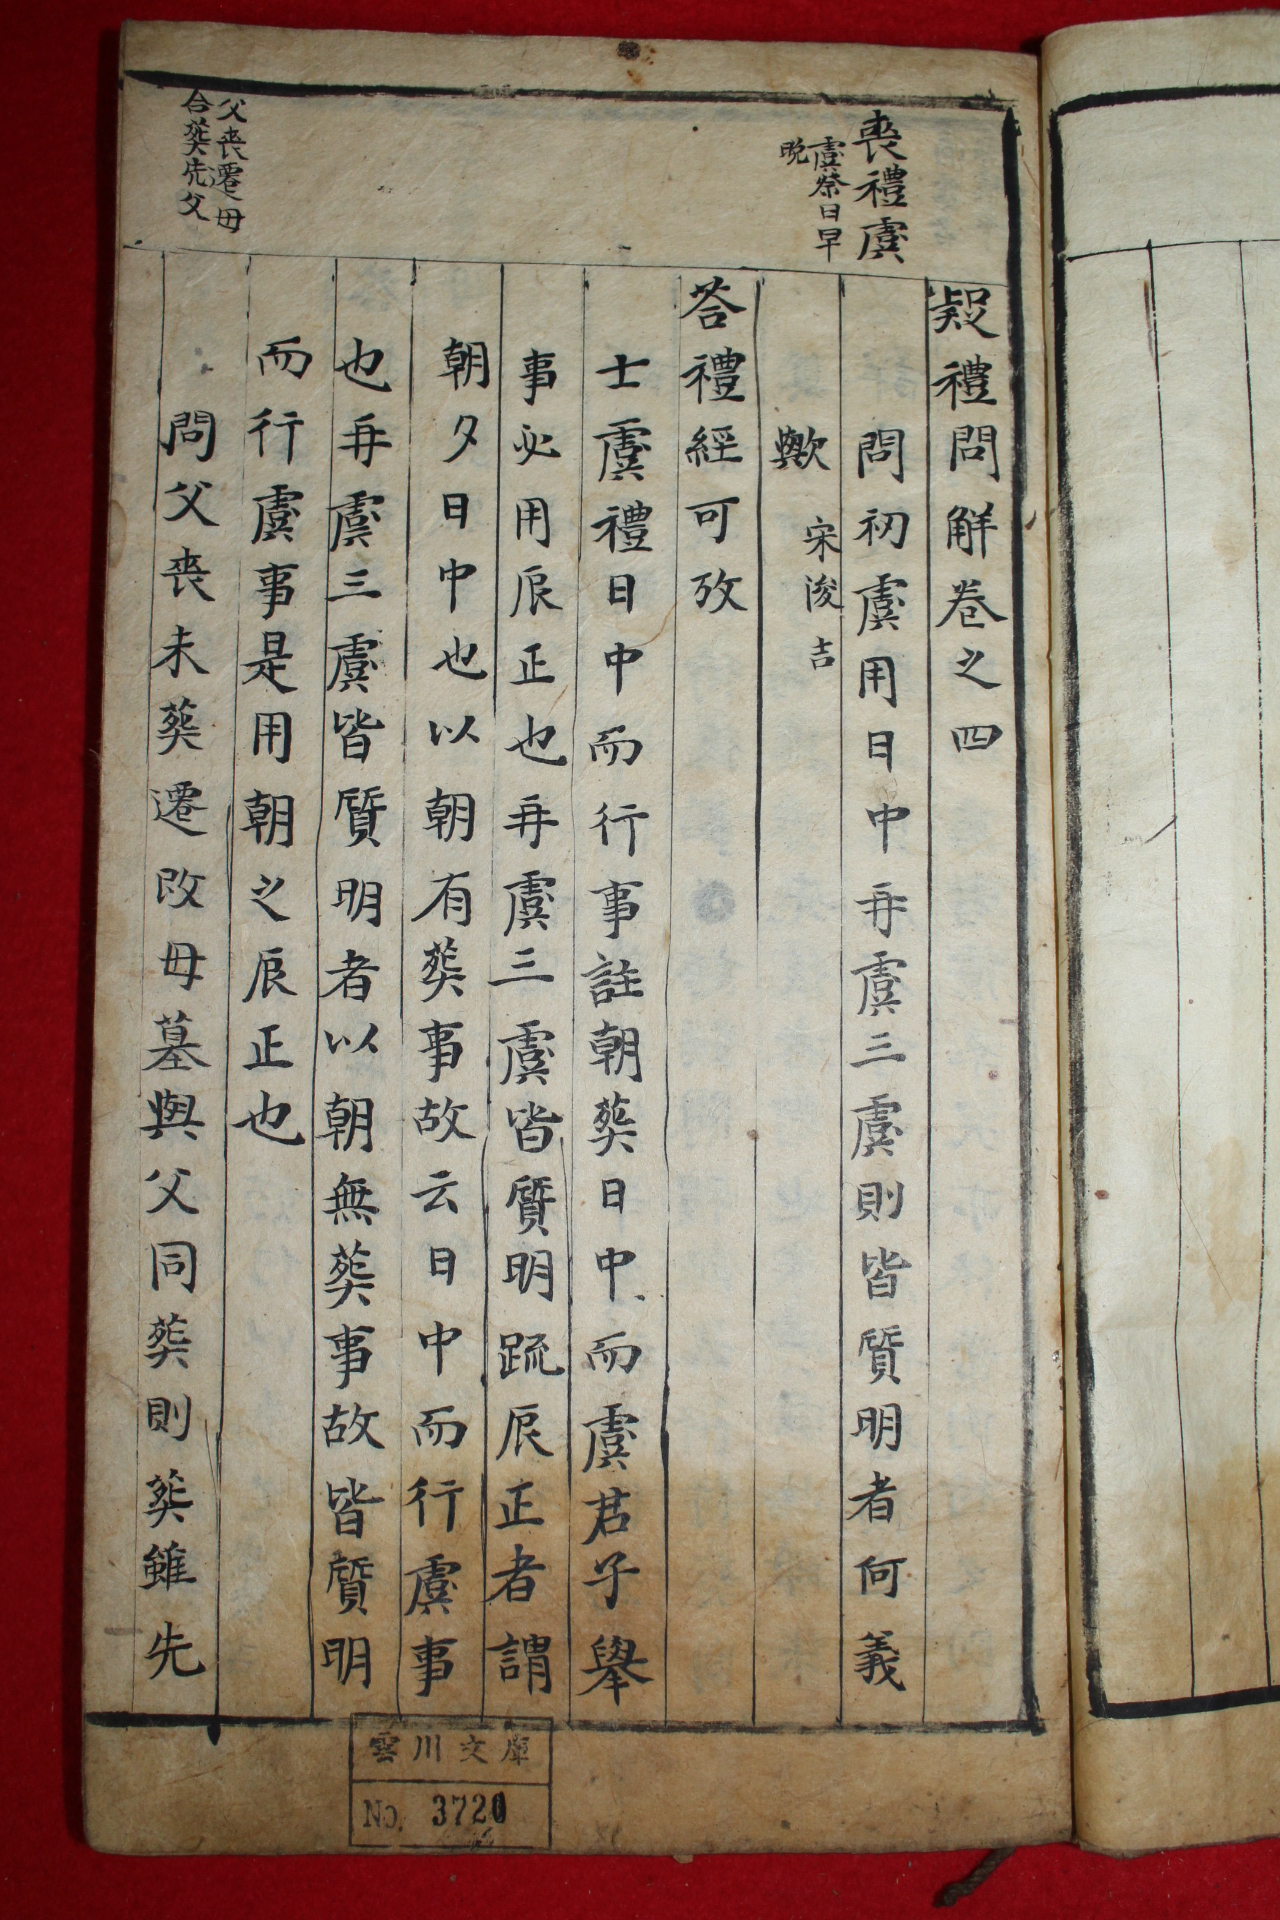 喪禮虞
虞祭日早
晩
疑禮問解卷之四
問初虞用日中再虞三虞則皆質明者何義
歟 宋浚吉
答禮經可攷
士虞禮日中而行事註朝葬日中而虞君子舉
事必用辰正也再虞三虞皆質明疏辰正者謂
朝夕日中也以朝有葬事故云日中而行虞事
也再虞三虞皆質明者以朝無葬事故皆質明
而行虞事是用朝之辰正也
父喪遷母
合葬先父
問父喪未葬遷改母墓與父同葬則葬雖先
雲川文庫
No. 3720